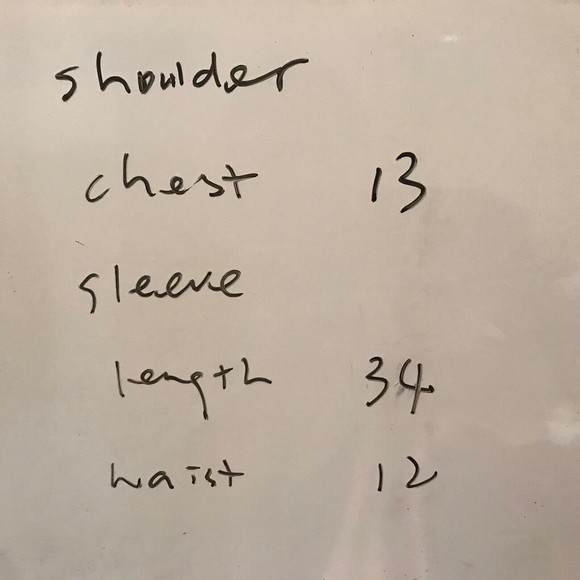 shoulder
chest 13
sleeve
length 34
waist 12